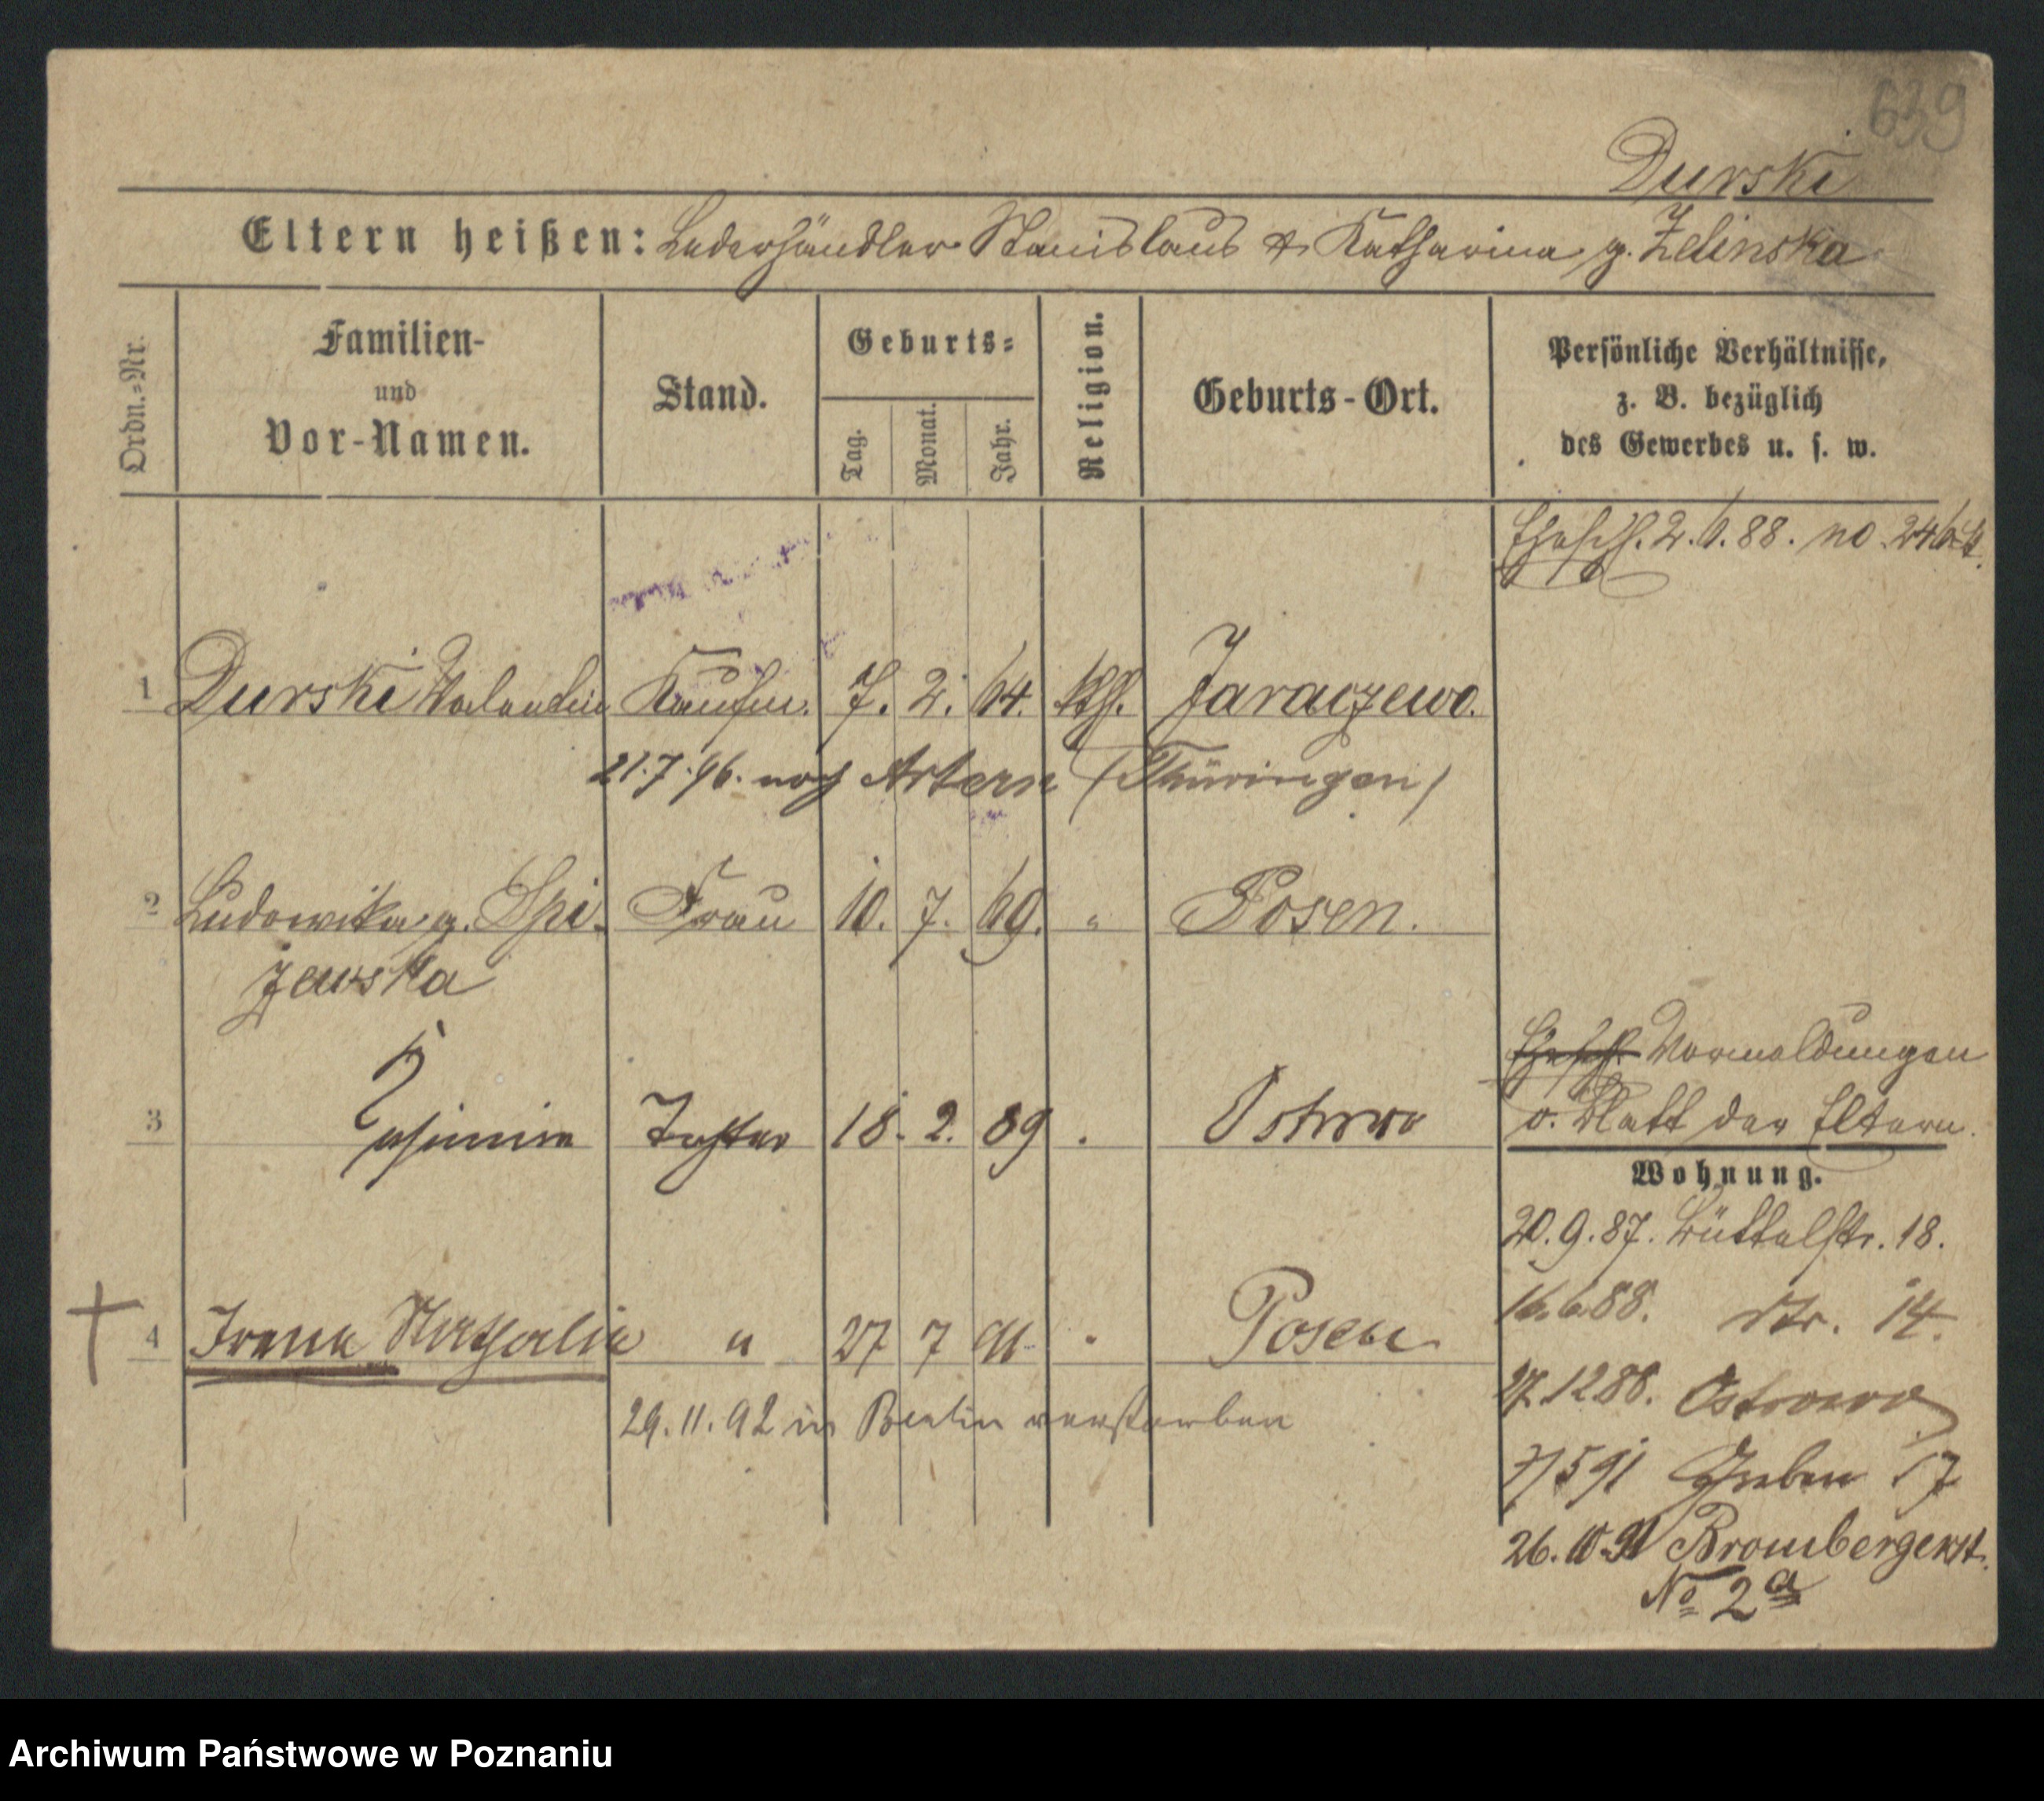 639
Durski
Eltern heißen: Lederhändler Stanislaus & Katharina g. Zelinska
Ordn.=Nr.
Familien-
und
Vor-Namen.
Stand.
Geburts=
Tag.
Monat.
Jahr.
Religion.
Geburts-Ort.
Persönliche Verhältnisse,
z. B. bezüglich
des Gewerbes u. s. w.
Ehesch. 2.6.88. no.
1 Durski Valentin Kaufm. 7. 2. 64. kth. Jaraczewo.
21.7.96. nach Artern (Thüringen)
2 Ludowika g. Spi- Frau 10. 7. 69. " Posen.
zewska
3 Tochter 18. 2. 89 Ostrowo
Ehesch. Vormeldungen
v. Blatt der Eltern.
Wohnung.
20.9.87. Büttelstr. 18.
16.6.88. dto. 14.
27.12 88. Ostrowo
4 Irena Nathalie " 27 7 91 " Posen
29.11.92 in Berlin verstorben
7/5 91 Graben 17
26.10.91 Brombergerst.
No 2a
Archiwum Państwowe w Poznaniu